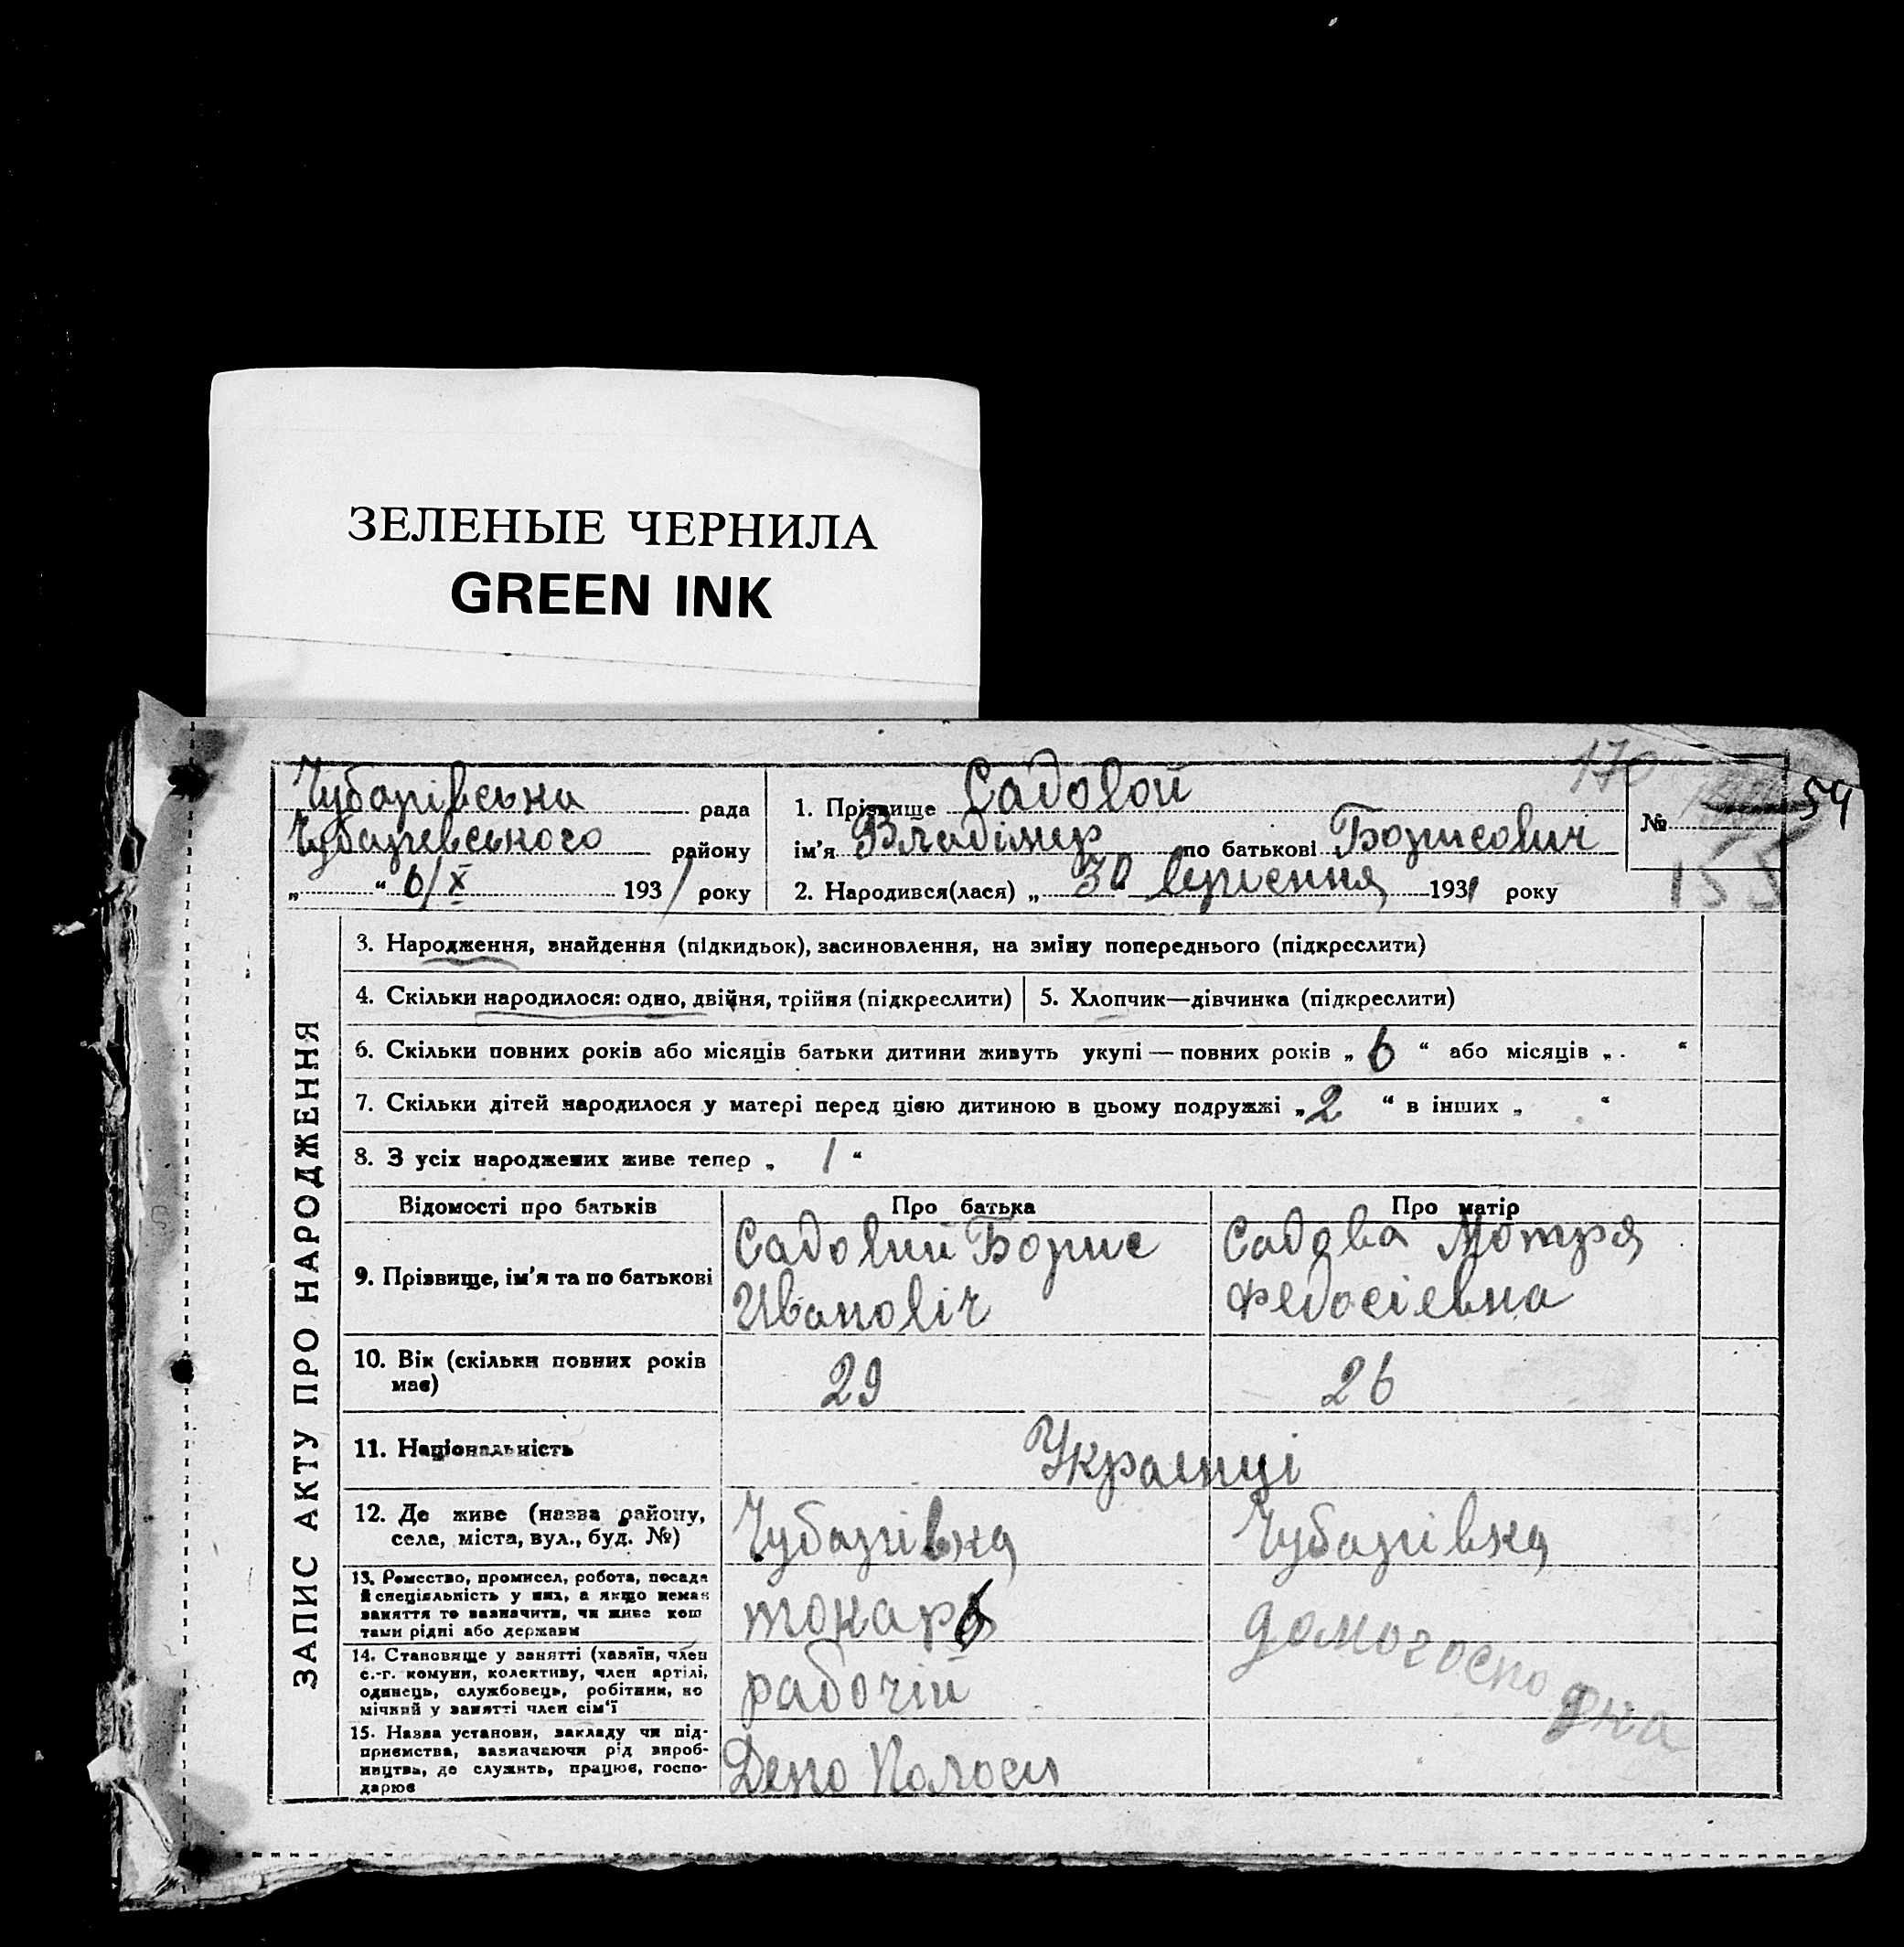 ЗЕЛЕНЫЕ ЧЕРНИЛА
GREEN INK
170
Чубарівська рада
Чубаревського району
„ “ 6/X 1931 року
1. Прізвище Садовой
ім'я Владімир по батькові Борисович
2. Народився(лася) „ 30 вересення 1931 року
№
54
155
ЗАПИС АКТУ ПРО НАРОДЖЕННЯ
3. Народження, знайдення (підкидьок), засиновлення, на зміну попереднього (підкреслити)
4. Скільки народилося: одно, двійня, трійня (підкреслити)
5. Хлопчик—дівчинка (підкреслити)
6. Скільки повних років або місяців батьки дитини живуть укупі — повних років „ 6 “ або місяців „ “
7. Скільки дітей народилося у матері перед цією дитиною в цьому подружжі „ 2 “ в інших „ “
8. З усіх народжених живе тепер „ 1 “
Відомості про батьків
Про батька
Про матір
9. Прізвище, ім'я та по батькові
Садовий Борис
Ивановіч
Садова Мотря
Федосіевна
10. Вік (скільки повних років
має)
29
26
11. Національність
Украинці
12. Де живе (назва району,
села, міста, вул., буд. №)
Чубарівка
Чубарівка
13. Ремество, промисел, робота, посада
й спеціяльність у них, а якщо немає
заняття то зазначити, чи живе кош
тами рідні або держави
токарь
домогоспо
дрка
14. Становище у занятті (хазяїн, член
с.-г. комуни, колективу, член артілі,
одинець, службовець, робітник, по
мічний у занятті член сім'ї
рабочій
15. Назва установи, закладу чи під-
приємства, зазначаючи рід вироб-
ництва, де служить, працює, госпо-
дарює
Депо Пологи